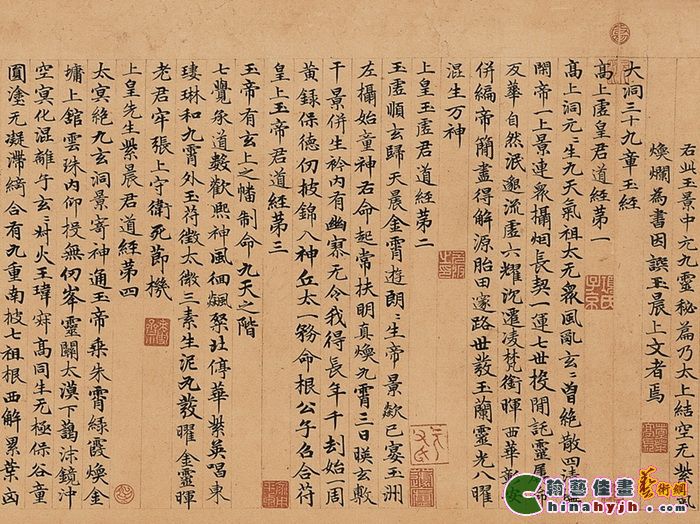 右此玉景中元九靈秘篇乃太上結空元紫
煥爛為書因譔玉晨上文者焉
大洞三十九章玉經
高上虛皇君道經苐一
高上洞元元生九天氣祖太元衆風亂玄玄曾絶散
開帝一上景連衆攝烟長契一運七世投閒託靈
友華自然泯邈流虛六耀沈遷凌梵銜暉西華
併編帝簡畫得解源胎田邃路世裝玉蘭靈光八曜
混生万神
上皇玉虛君道經苐二
玉虛順玄歸天晨金霄遊朗朗生帝景歘已宴玉洲
左攝始童神右命起常扶明真煥九霄三日暎玄敷
千景併生衿內有幽寥无令我得長年千刦始一周
黃録保德仞披錦八神丘太一務命根公子名合符
皇上玉帝君道經苐三
玉帝有玄上之幡制命九天之階
七覺承道數歡熙神風徊飆聚社停華紫英唱東
瑧琳和九霄外玉符徵太微三素生泥丸裝曜金靈暉
老君牢張上守衛死節機
上皇先生紫晨君道經苐四
太冥絶九玄洞景寄神通玉帝乘朱霄綠霞煥金
墉上館雲珠內仰投無仞峯靈關太漠下藹沫鏡沖
空冥化混離子玄玄叶火王瑋寂高同生无極保谷童
圓塗无凝滯綺合有九重南披七祖根西解累葉凶
翰藝佳畫藝術網
hinahyjh.com